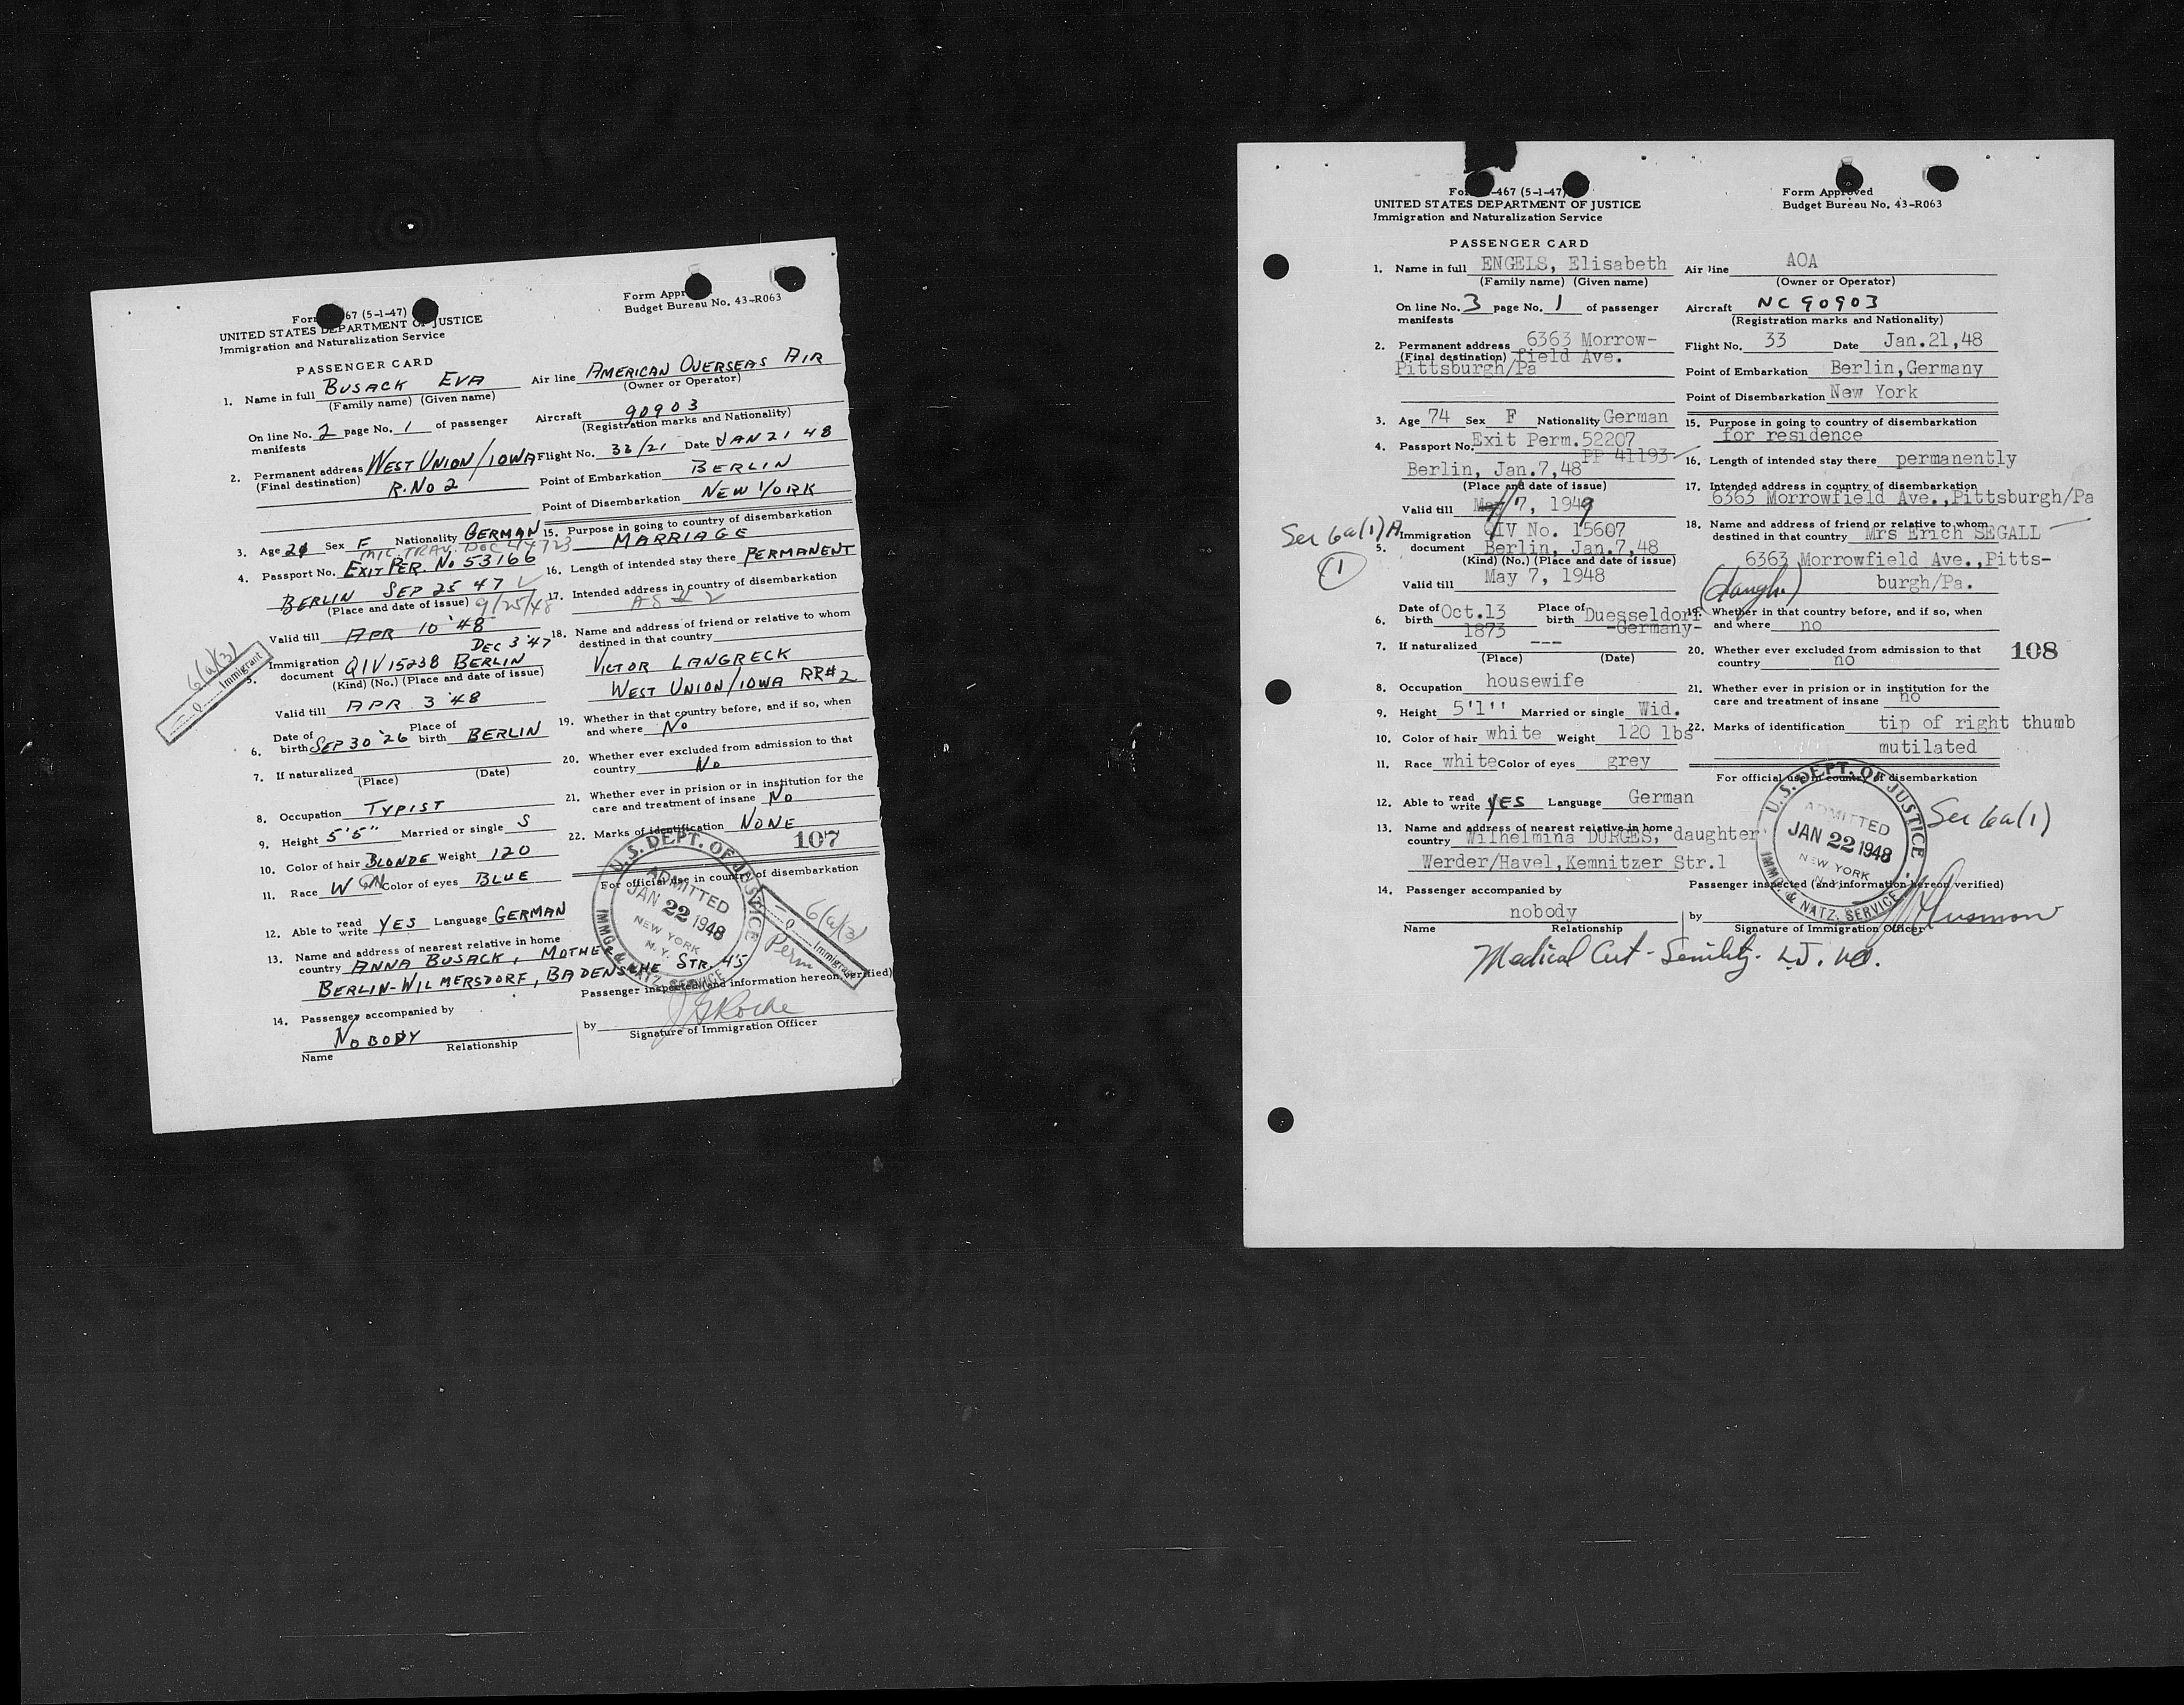 Form 67 (5-1-47)
UNITED STATES DEPARTMENT OF JUSTICE
Immigration and Naturalization Service
Form Appr
Budget Bureau No. 43-R063
PASSENGER CARD
1. Name in full BUSACK EVA
(Family name) (Given name)
Air line AMERICAN OVERSEAS AIR
(Owner or Operator)
On line No. 2 page No. 1 of passenger
manifests
Aircraft 90903
(Registration marks and Nationality)
2. Permanent address WEST UNION/IOWA
(Final destination) R.NO 2
Flight No. 33/21 Date JAN 21 48
Point of Embarkation BERLIN
Point of Disembarkation NEW YORK
3. Age 21 Sex F Nationality GERMAN
MIL. TRAV. DOC 44723
4. Passport No. EXIT PER. No 53166
BERLIN SEP 25 47
(Place and date of issue) 9/25/48
Valid till APR 10 '48
DEC 3 '47
5. Immigration
document QIV 15238 BERLIN
(Kind) (No.) (Place and date of issue)
Valid till APR 3 '48
6(a)(3)
Immigrant
6. Date of
birth SEP 30 '26 Place of
birth BERLIN
7. If naturalized
(Place) (Date)
8. Occupation TYPIST
9. Height 5'5" Married or single S
10. Color of hair BLONDE Weight 120
11. Race W Color of eyes BLUE
12. Able to read
write YES Language GERMAN
13. Name and address of nearest relative in home
country ANNA BUSACK, MOTHER
BERLIN-WILMERSDORF, BADENSCHE STR. 45
14. Passenger accompanied by
NOBODY
Name Relationship
15. Purpose in going to country of disembarkation
MARRIAGE
16. Length of intended stay there PERMANENT
17. Intended address in country of disembarkation
AS 2
18. Name and address of friend or relative to whom
destined in that country
VICTOR LANGRECK
WEST UNION/IOWA RR#2
19. Whether in that country before, and if so, when
and where No
20. Whether ever excluded from admission to that
country No
21. Whether ever in prision or in institution for the
care and treatment of insane No
22. Marks of identification NONE
107
For official use in country of disembarkation
U.S. DEPT. OF JUSTICE
ADMITTED
JAN 22 1948
NEW YORK
N.Y.
IMMG. & NATZ. SERVICE
6(a)(3)
Immigrant
Perm
Passenger inspected (and information hereon verified)
by
Signature of Immigration Officer
Fo -467 (5-1-47)
UNITED STATES DEPARTMENT OF JUSTICE
Immigration and Naturalization Service
Form Approved
Budget Bureau No. 43-R063
PASSENGER CARD
1. Name in full ENGELS, Elisabeth
(Family name) (Given name)
Air line AOA
(Owner or Operator)
On line No. 3 page No. 1 of passenger
manifests
Aircraft NC 90903
(Registration marks and Nationality)
2. Permanent address 6363 Morrow-
(Final destination) field Ave.
Pittsburgh/Pa
Flight No. 33 Date Jan.21,48
Point of Embarkation Berlin,Germany
Point of Disembarkation New York
3. Age 74 Sex F Nationality German
4. Passport No. Exit Perm.52207
PP 41193
Berlin, Jan.7,48
(Place and date of issue)
Valid till May 7, 1949
Sec 6a(1)A
1
5. Immigration QIV No. 15607
document Berlin, Jan.7,48
(Kind) (No.) (Place and date of issue)
Valid till May 7, 1948
6. Date of
birth Oct.13
1873
Place of
birth Duesseldorf
-Germany-
7. If naturalized ---
(Place) (Date)
8. Occupation housewife
9. Height 5'1'' Married or single Wid.
10. Color of hair white Weight 120 lbs
11. Race white Color of eyes grey
12. Able to read
write YES Language German
13. Name and address of nearest relative in home
country Wilhelmina DURGES, daughter
Werder/Havel,Kemnitzer Str.1
14. Passenger accompanied by
nobody
Name Relationship
15. Purpose in going to country of disembarkation
for residence
16. Length of intended stay there permanently
17. Intended address in country of disembarkation
6363 Morrowfield Ave.,Pittsburgh/Pa
18. Name and address of friend or relative to whom
destined in that country Mrs Erich SEGALL
6363 Morrowfield Ave.,Pitts-
burgh/Pa.
(daugh.)
19. Whether in that country before, and if so, when
and where no
20. Whether ever excluded from admission to that
country no
108
21. Whether ever in prision or in institution for the
care and treatment of insane no
22. Marks of identification tip of right thumb
mutilated
For official use in country of disembarkation
U.S. DEPT. OF JUSTICE
ADMITTED
JAN 22 1948
NEW YORK
N.Y.
IMMG. & NATZ. SERVICE
Sec 6a(1)
Passenger inspected (and information hereon verified)
by
Signature of Immigration Officer
Medical Cert - Senility.